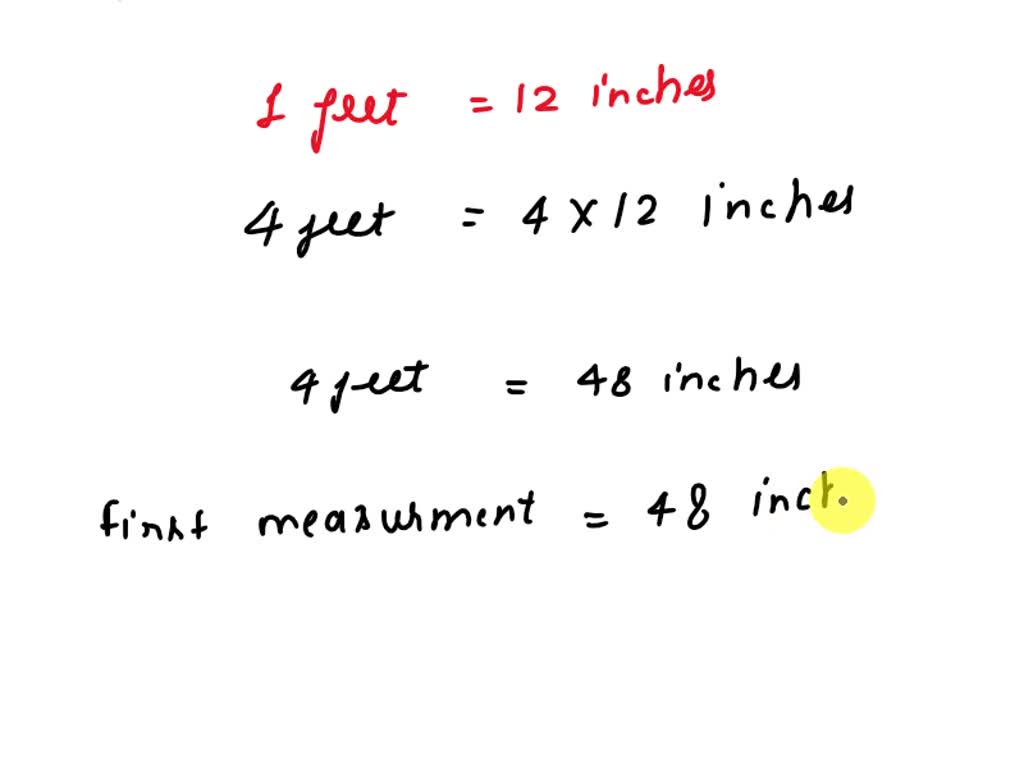 1 feet = 12 inches
4 feet = 4 x 12 inches
4 feet = 48 inches
first measurment = 48 inch